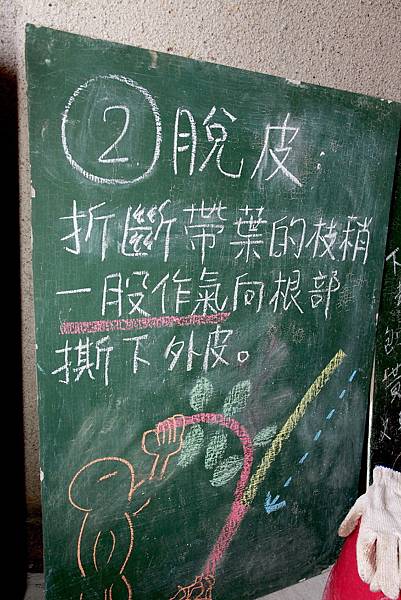 ② 脫皮:
折斷帶葉的枝稍
一股作氣向根部
撕下外皮。